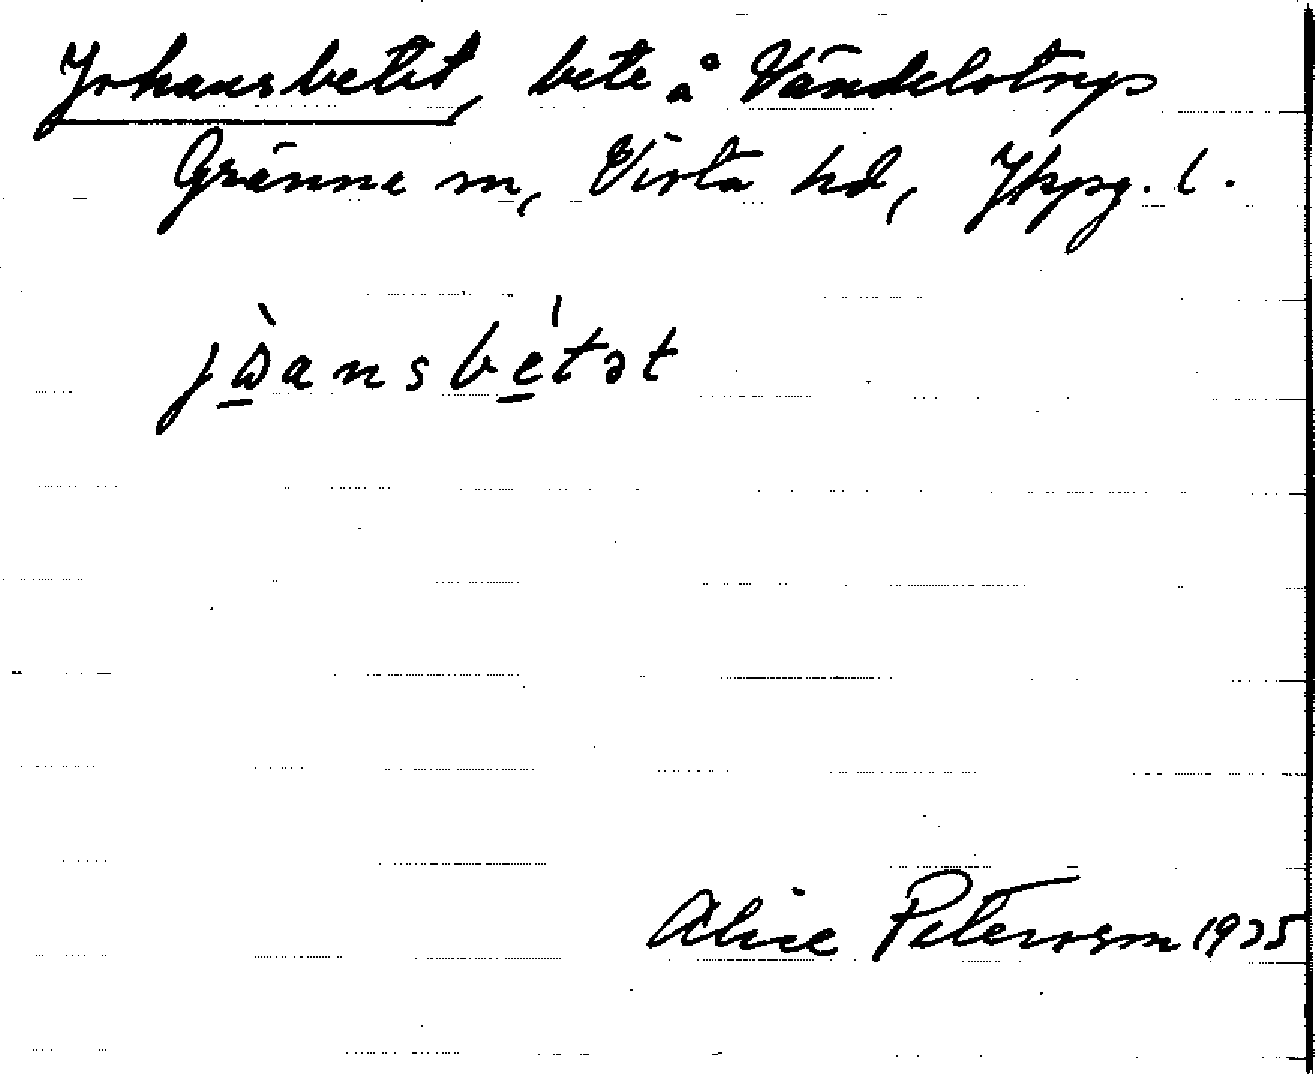 Johansbetet, bete å Vändelstorp
Gränna sn, Vista hd, Jkpg. l.
jɷ̀ansbétət
Alice Petersson 1935